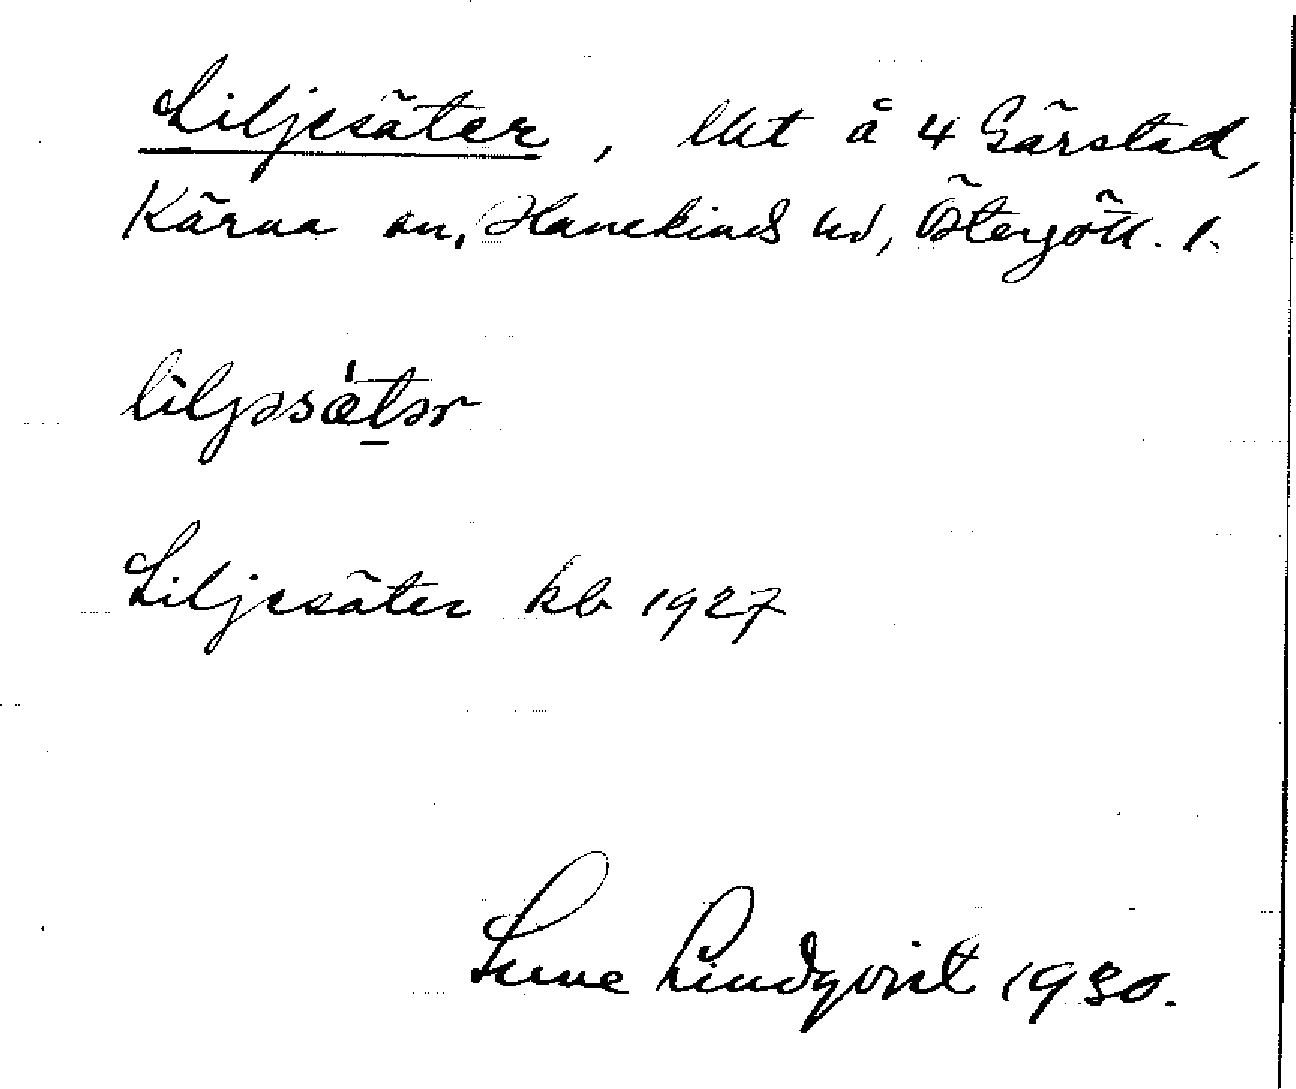 Liljesäter, lht å 4 Gärstad,
Kärna sn, Hanekinds hd, Östergötl. l.
liljəsǽtər
Liljesäter kb 1927
Sune Lindqvist 1930.